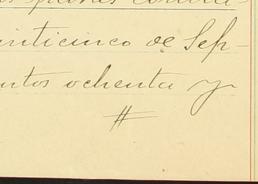 inticinco de Sep-
ntos ochenta y
#